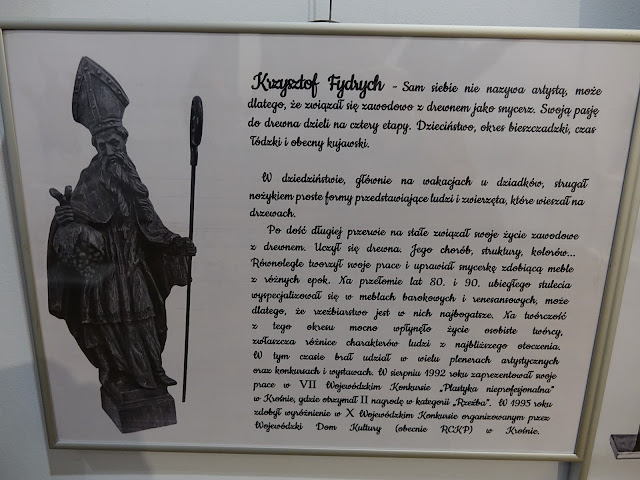 Krzysztof Fydrych - Sam siebie nie nazywa artystą, może
dlatego, że związał się zawodowo z drewnem jako snycerz. Swoją pasję
do drewna dzieli na cztery etapy. Dzieciństwo, okres bieszczadzki, czas
łódzki i obecny kujawski.
W dziedziństwie, głównie na wakacjach u dziadków, strugał
nożykiem proste formy przedstawiające ludzi i zwierzęta, które wieszał na
drzewach.
Po dość długiej przerwie na stałe związał swoje życie zawodowe
z drewnem. Uczył się drewna. Jego chorób, struktury, kolorów...
Równolegle tworzył swoje prace i uprawiał snycerkę zdobiącą meble
z różnych epok. Na przełomie lat 80. i 90. ubiegłego stulecia
wyspecjalizował się w meblach barokowych i renesansowych, może
dlatego, że rzeźbiarstwo jest w nich najbogatsze. Na twórczość
z tego okresu mocno wpłynęło życie osobiste twórcy,
zwłaszcza różnice charakterów ludzi z najbliższego otoczenia.
W tym czasie brał udział w wielu plenerach artystycznych
oraz konkursach i wystawach. W sierpniu 1992 roku zaprezentował swoje
prace w VII Wojewódzkim Konkursie „Plastyka nieprofesjonalna"
w Krośnie, gdzie otrzymał II nagrodę w kategorii „Rzeźba". W 1995 roku
zdobył wyróżnienie w X Wojewódzkim Konkursie organizowanym przez
Wojewódzki Dom Kultury (obecnie RCKP) w Krośnie.